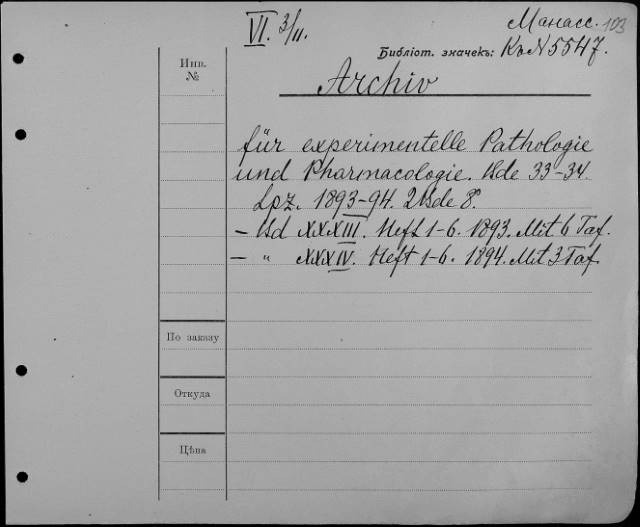 VI. 3/II.
Манасс. 103
Библіот. значекъ: Къ N 5547.
Инв.
№
Archiv
für experimentelle Pathologie
und Pharmacologie. Bde 33-34.
Lpz. 1893-94. 2 Bde 8°.
- Bd XXXIII. Heft 1-6. 1893. Mit 6 Taf.
- " XXXIV. Heft 1-6. 1894. Mit 3 Taf.
По заказу
Откуда
Цѣна